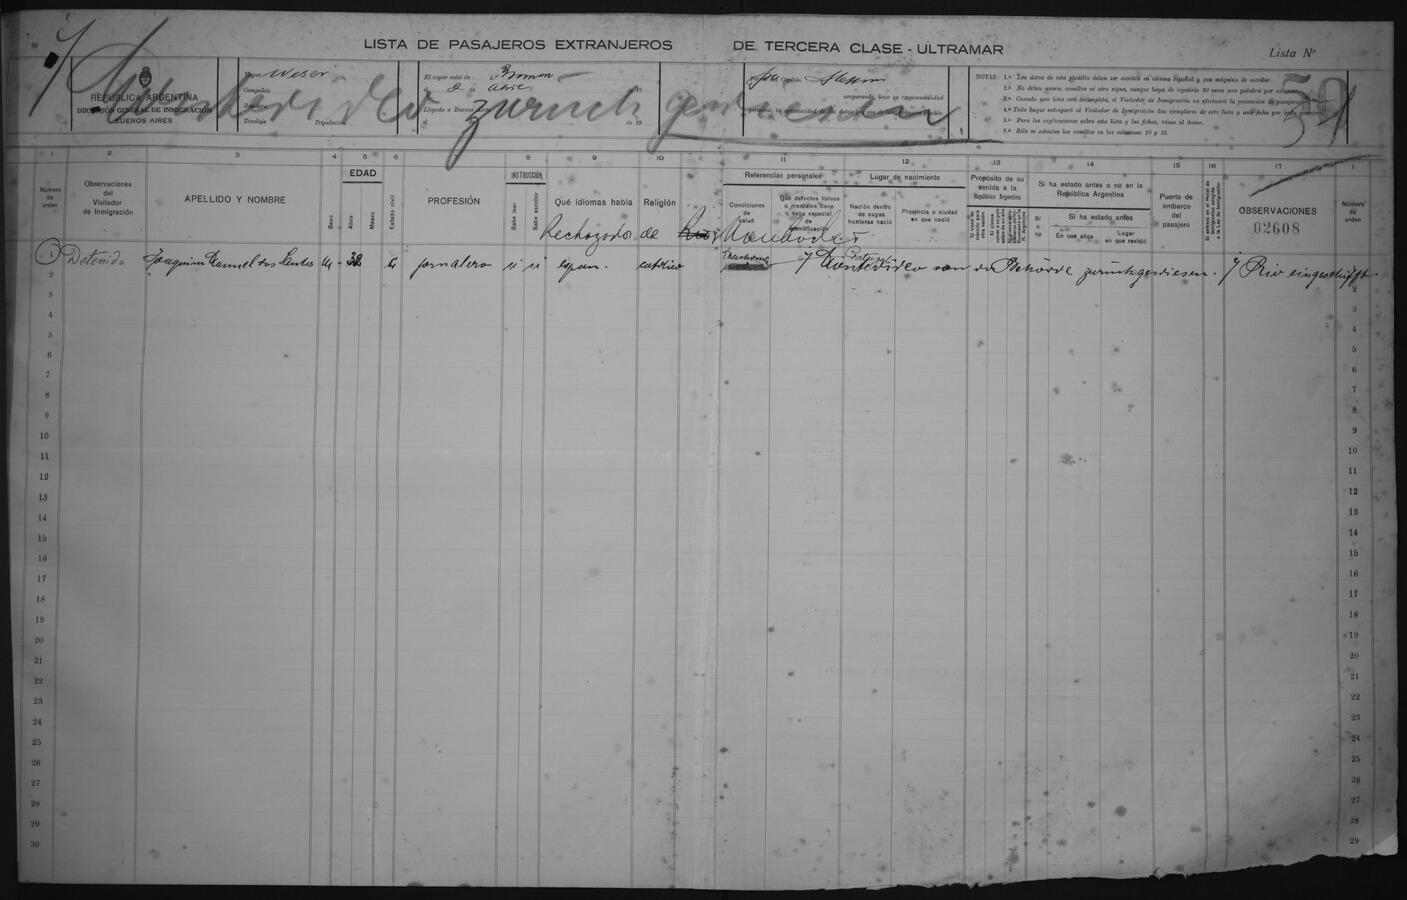 LISTA DE PASAJEROS EXTRANJEROS DE TERCERA CLASE - ULTRAMAR
Lista Nº
59
REPÚBLICA ARGENTINA
DIRECCIÓN GENERAL DE INMIGRACIÓN
BUENOS AIRES
Weser
Compañía
Bandera
Tonelaje Tripulación
El vapor salió de Bremen
Llegado a Buenos Aires
el de 19
Capitán
comparendo, bajo su responsabilidad
Montevideo zurückgewiesen
NOTAS: 1.ª Los datos de esta planilla deben ser escritos en idioma español y con máquina de escribir.
2.ª No deben usarse comillas ni otro signo, aunque haya de repetirse 30 veces una palabra por columna.
3.ª Cuando una lista esté incompleta, el Visitador de Inmigración no efectuará la revisación de pasajeros.
4.ª Todo buque entregará al Visitador de Inmigración dos ejemplares de esta lista y una ficha por cada pasajero.
5.ª Para las explicaciones sobre esta lista y las fichas, véase al dorso.
6.ª Sólo se admiten las comillas en las columnas 10 y 15.
1 2 3 4 5 6 8 9 10 11 12 13 14 15 16 17 1
Número de orden
Observaciones del Visitador de Inmigración
APELLIDO Y NOMBRE
Sexo
EDAD
Años
Meses
Estado civil
PROFESIÓN
INSTRUCCIÓN
Sabe leer
Sabe escribir
Qué idiomas habla
Religión
Referencias personales
Condiciones de salud
Qué defectos físicos o mentales tiene o seña especial de identificación
Lugar de nacimiento
Nación dentro de cuyas fronteras nació
Provincia o ciudad en que nació
Propósito de su venida a la República Argentina
Si ha estado antes o no en la República Argentina
Sí o no
Si ha estado antes
En que años
Lugar en que residió
Puerto de embarco del pasajero
OBSERVACIONES
02608
Número de orden
Rechazado de
1 Detenido Joaquim Manuel dos Santos M 32 C jornalero si si españ. católico Trachoma Portugal
Montevideo von der Behörde zurückgewiesen. Rio eingeschifft
2
3
4
5
6
7
8
9
10
11
12
13
14
15
16
17
18
19
20
21
22
23
24
25
26
27
28
29
30